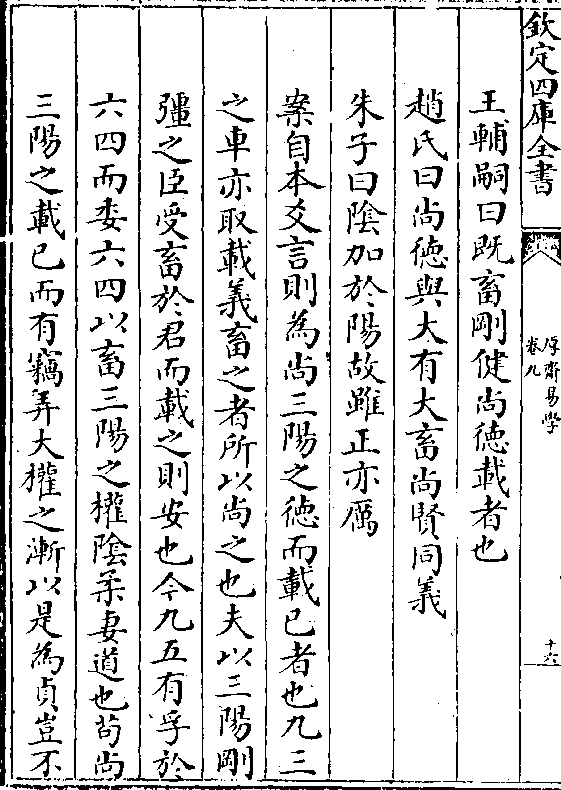 欽定四庫全書
厚齋易學
卷九
十六
王輔嗣曰旣畜剛健尚徳載者也
趙氏曰尚徳與大有大畜尚賢同義
朱子曰陰加於陽故雖正亦厲
案自本爻言則為尚三陽之徳而載已者也九三
之車亦取載義畜之者所以尚之也夫以三陽剛
彊之臣受畜於君而載之則安也今九五有孚於
六四而委六四以畜三陽之權陰柔妻道也茍尚
三陽之載已而有竊弄大權之漸以是為貞豈不